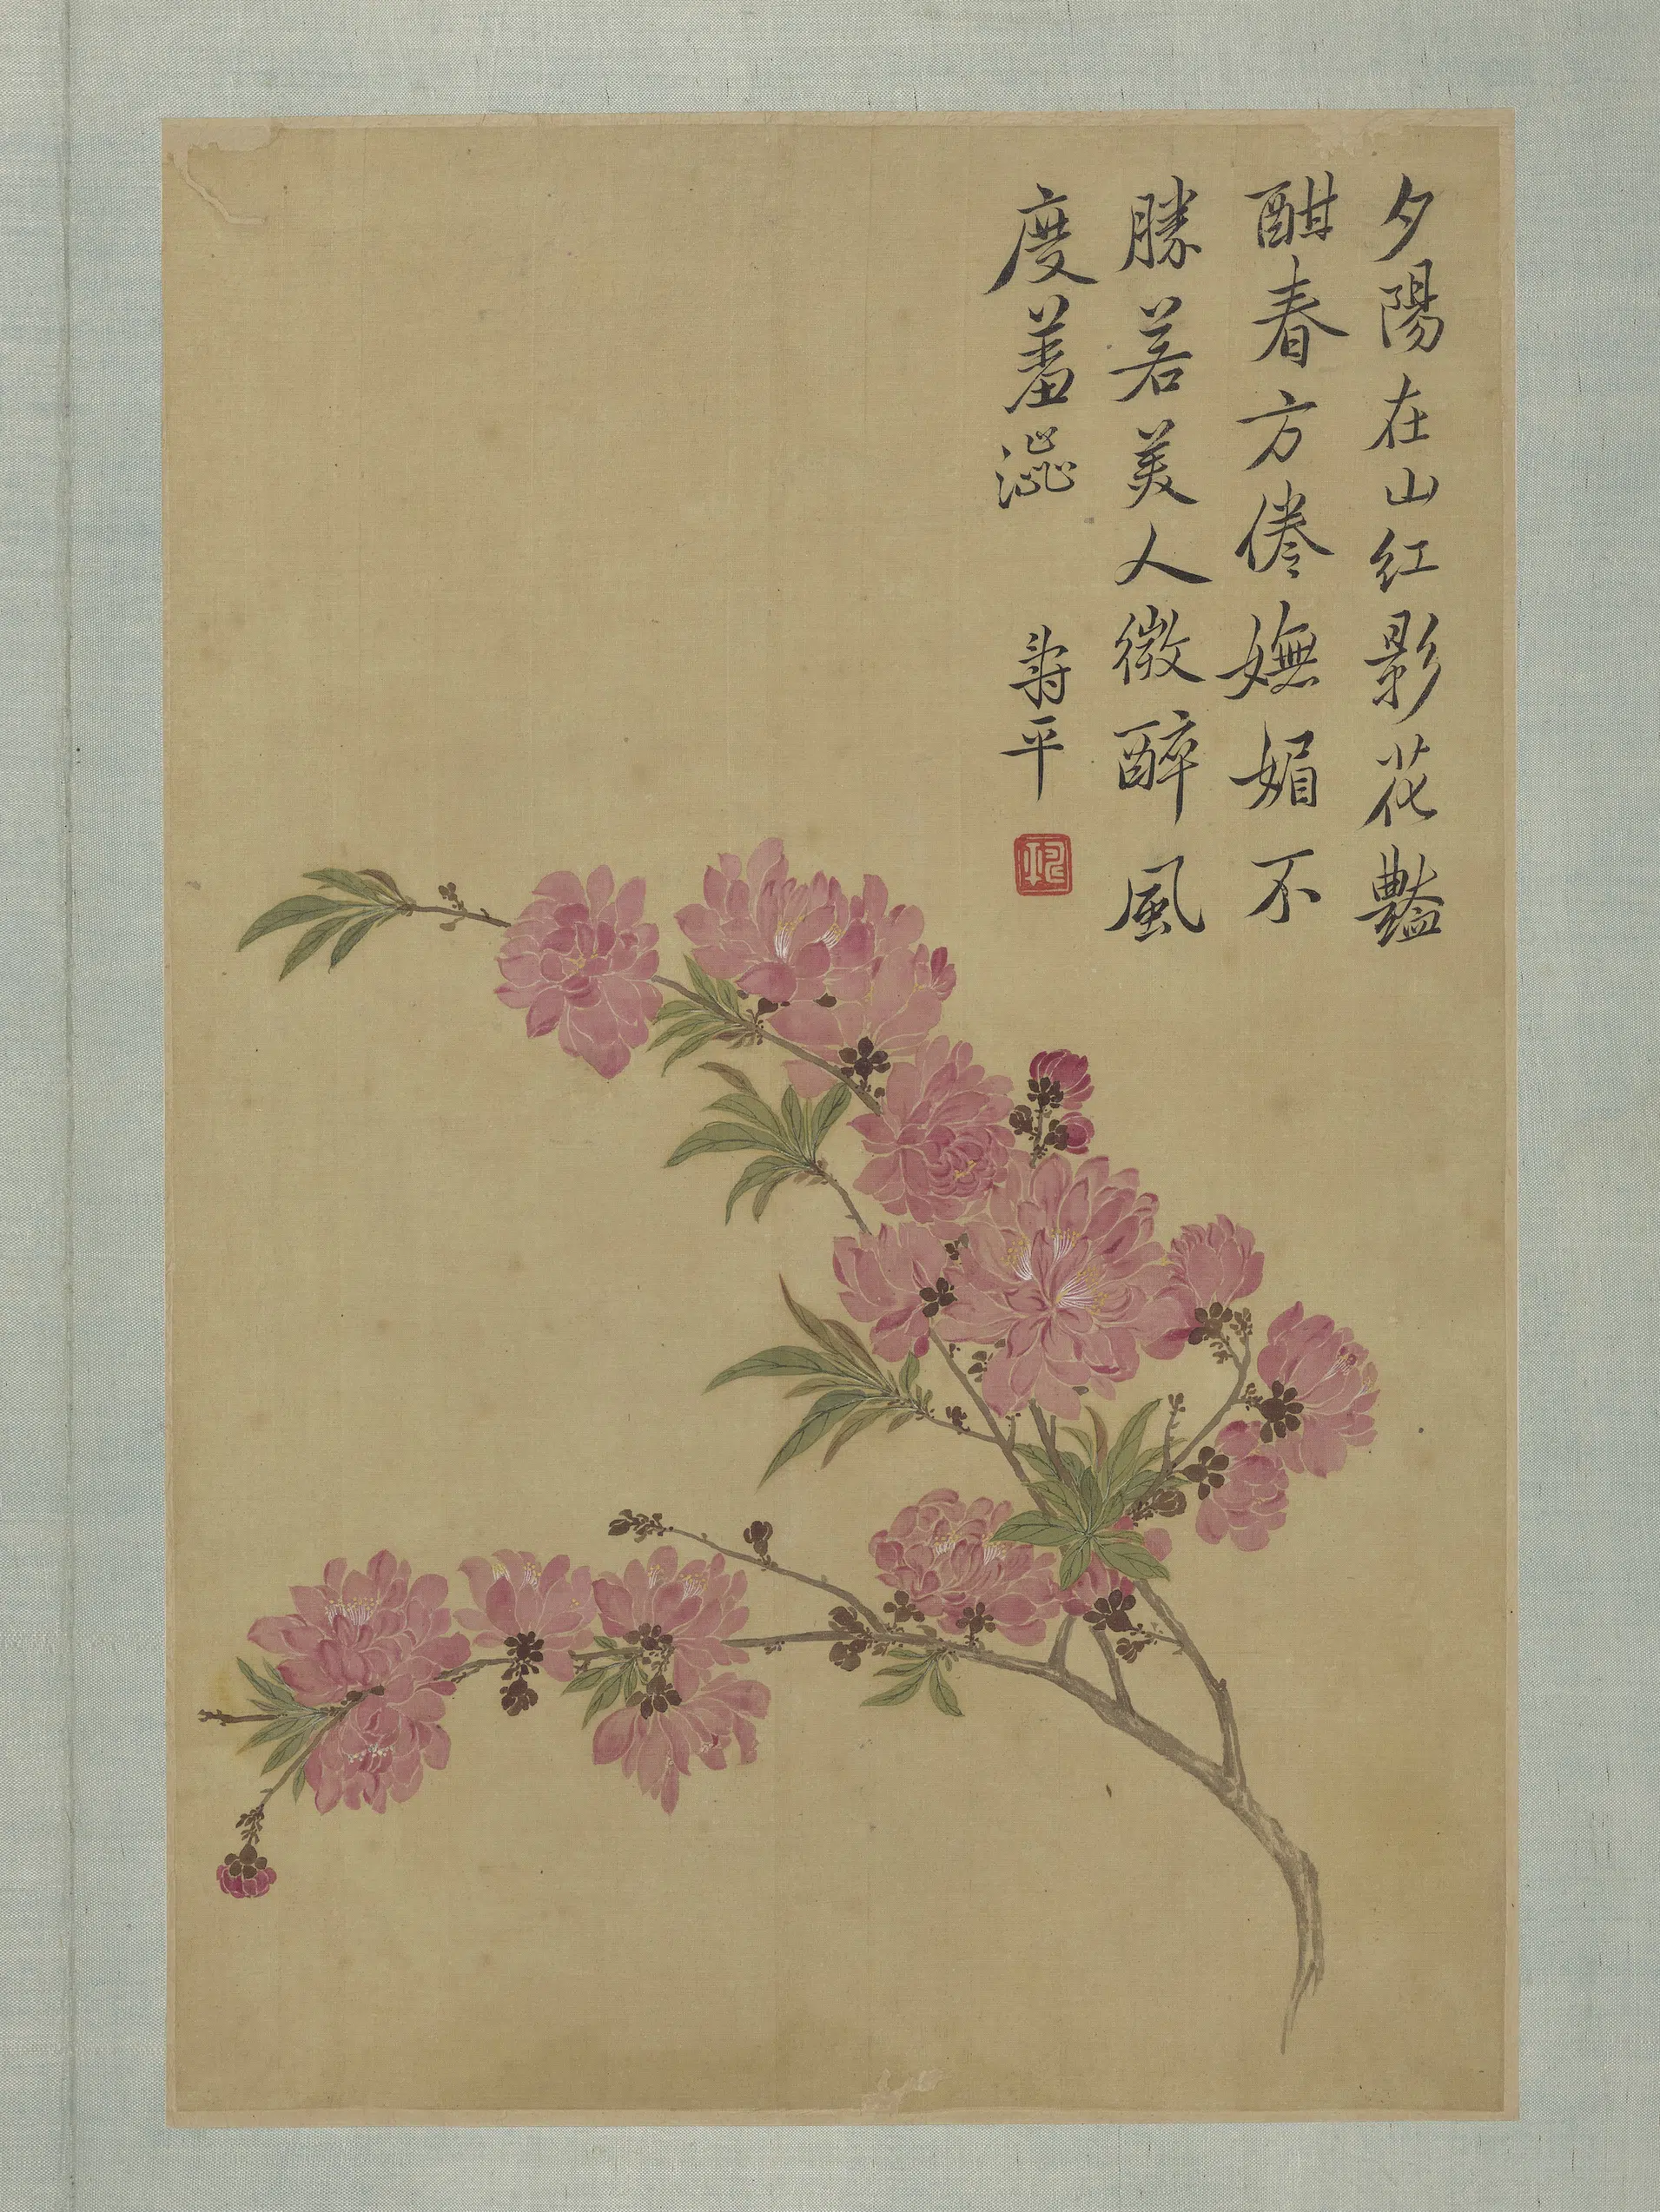 夕陽在山紅影花豔
酣春方倦嫵媚不
勝若美人微醉風
度羞澀
壽平